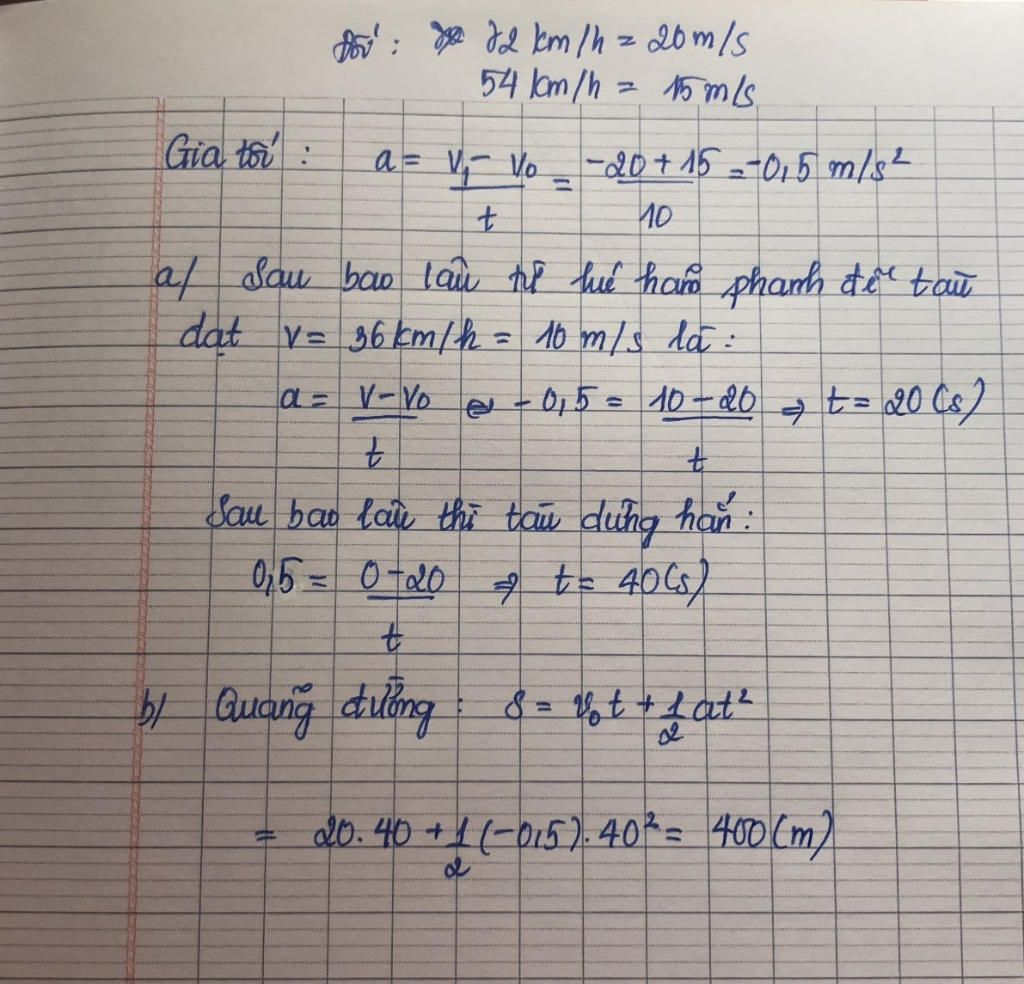 Đổi : 72 km/h = 20 m/s
54 km/h = 15 m/s
Gia tốc : a = (v₁ - v₀)/t = (-20 + 15)/10 = -0,5 m/s²
a/ Sau bao lâu từ lúc hãm phanh để tàu
đạt v = 36 km/h = 10 m/s là :
a = (v - v₀)/t ⇔ -0,5 = (10 - 20)/t ⇒ t = 20 (s)
Sau bao lâu thì tàu dừng hẳn :
0,5 = (0 - 20)/t ⇒ t = 40 (s)
b/ Quãng đường : s = v₀t + 1/2 at²
= 20.40 + 1/2 (-0,5).40² = 400 (m)